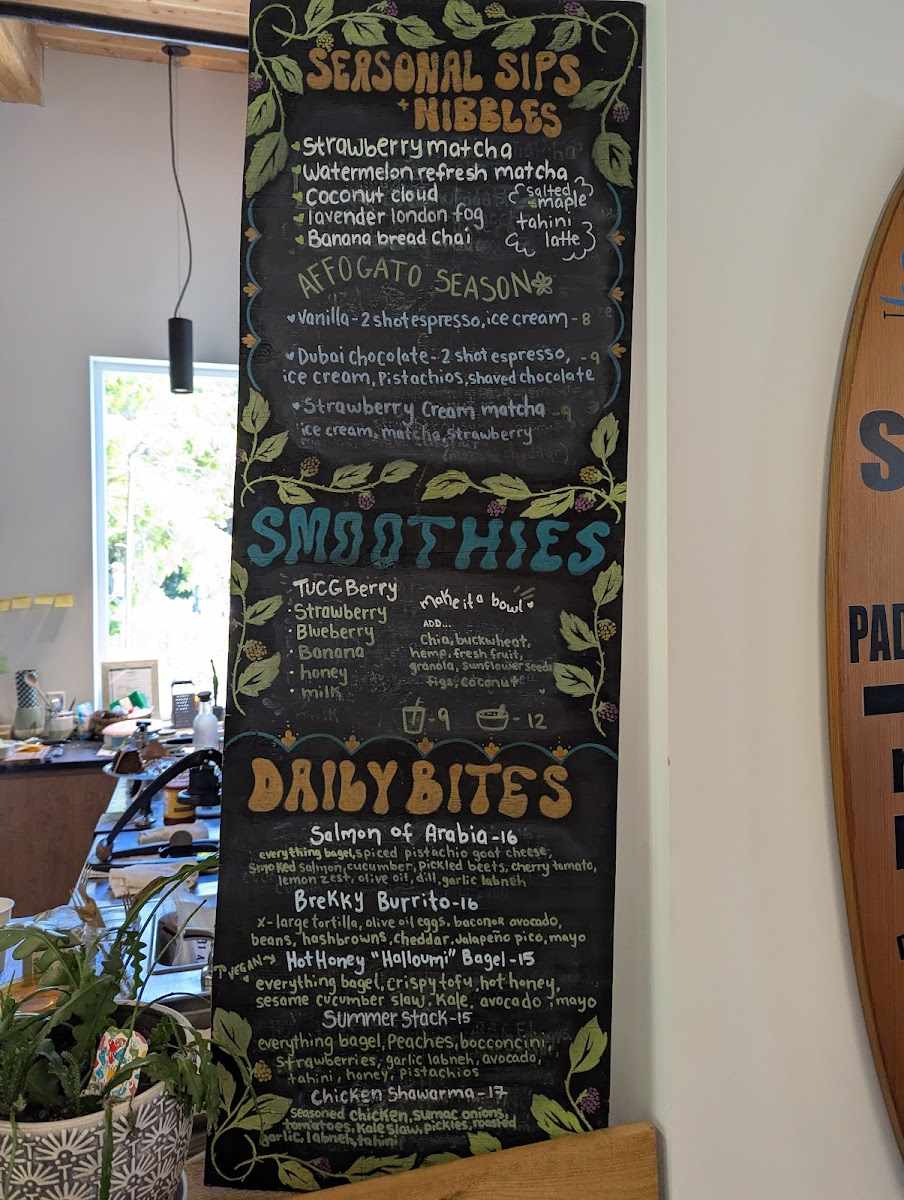 SEASONAL SIPS
+ NIBBLES
Strawberry matcha
Watermelon refresh matcha
Coconut cloud
lavender london fog
Banana bread chai
salted
maple
tahini
latte
AFFOGATO SEASON
Vanilla - 2 shot espresso, ice cream - 8
Dubai chocolate - 2 shot espresso, - 9
ice cream, Pistachios, shaved chocolate
Strawberry Cream matcha - 9
ice cream, matcha, strawberry
SMOOTHIES
TUCG Berry
· Strawberry
· Blueberry
· Banana
· honey
· milk
make it a bowl
ADD...
Chia, buckwheat,
hemp, fresh fruit,
granola, sunflower seeds
figs, coconut
- 9
- 12
DAILY BITES
Salmon of Arabia - 16
everything bagel, spiced pistachio goat cheese,
smoked salmon, cucumber, pickled beets, cherry tomato,
lemon zest, olive oil, dill, garlic labneh
BreKKy Burrito - 16
x-large tortilla, olive oil eggs, bacon OR avocado,
beans, hashbrowns, cheddar, Jalapeño pico, mayo
VEGAN
Hot Honey "Halloumi" Bagel - 15
everything bagel, crispy tofu, hot honey,
sesame cucumber slaw, Kale, avocado, mayo
Summer Stack - 15
everything bagel, Peaches, bocconcini,
strawberries, garlic labneh, avocado,
tahini, honey, pistachios
Chicken Shawarma - 17
seasoned chicken, sumac onions,
tomatoes, Kale slaw, pickles, roasted
garlic, labneh, tahini
S
PAD